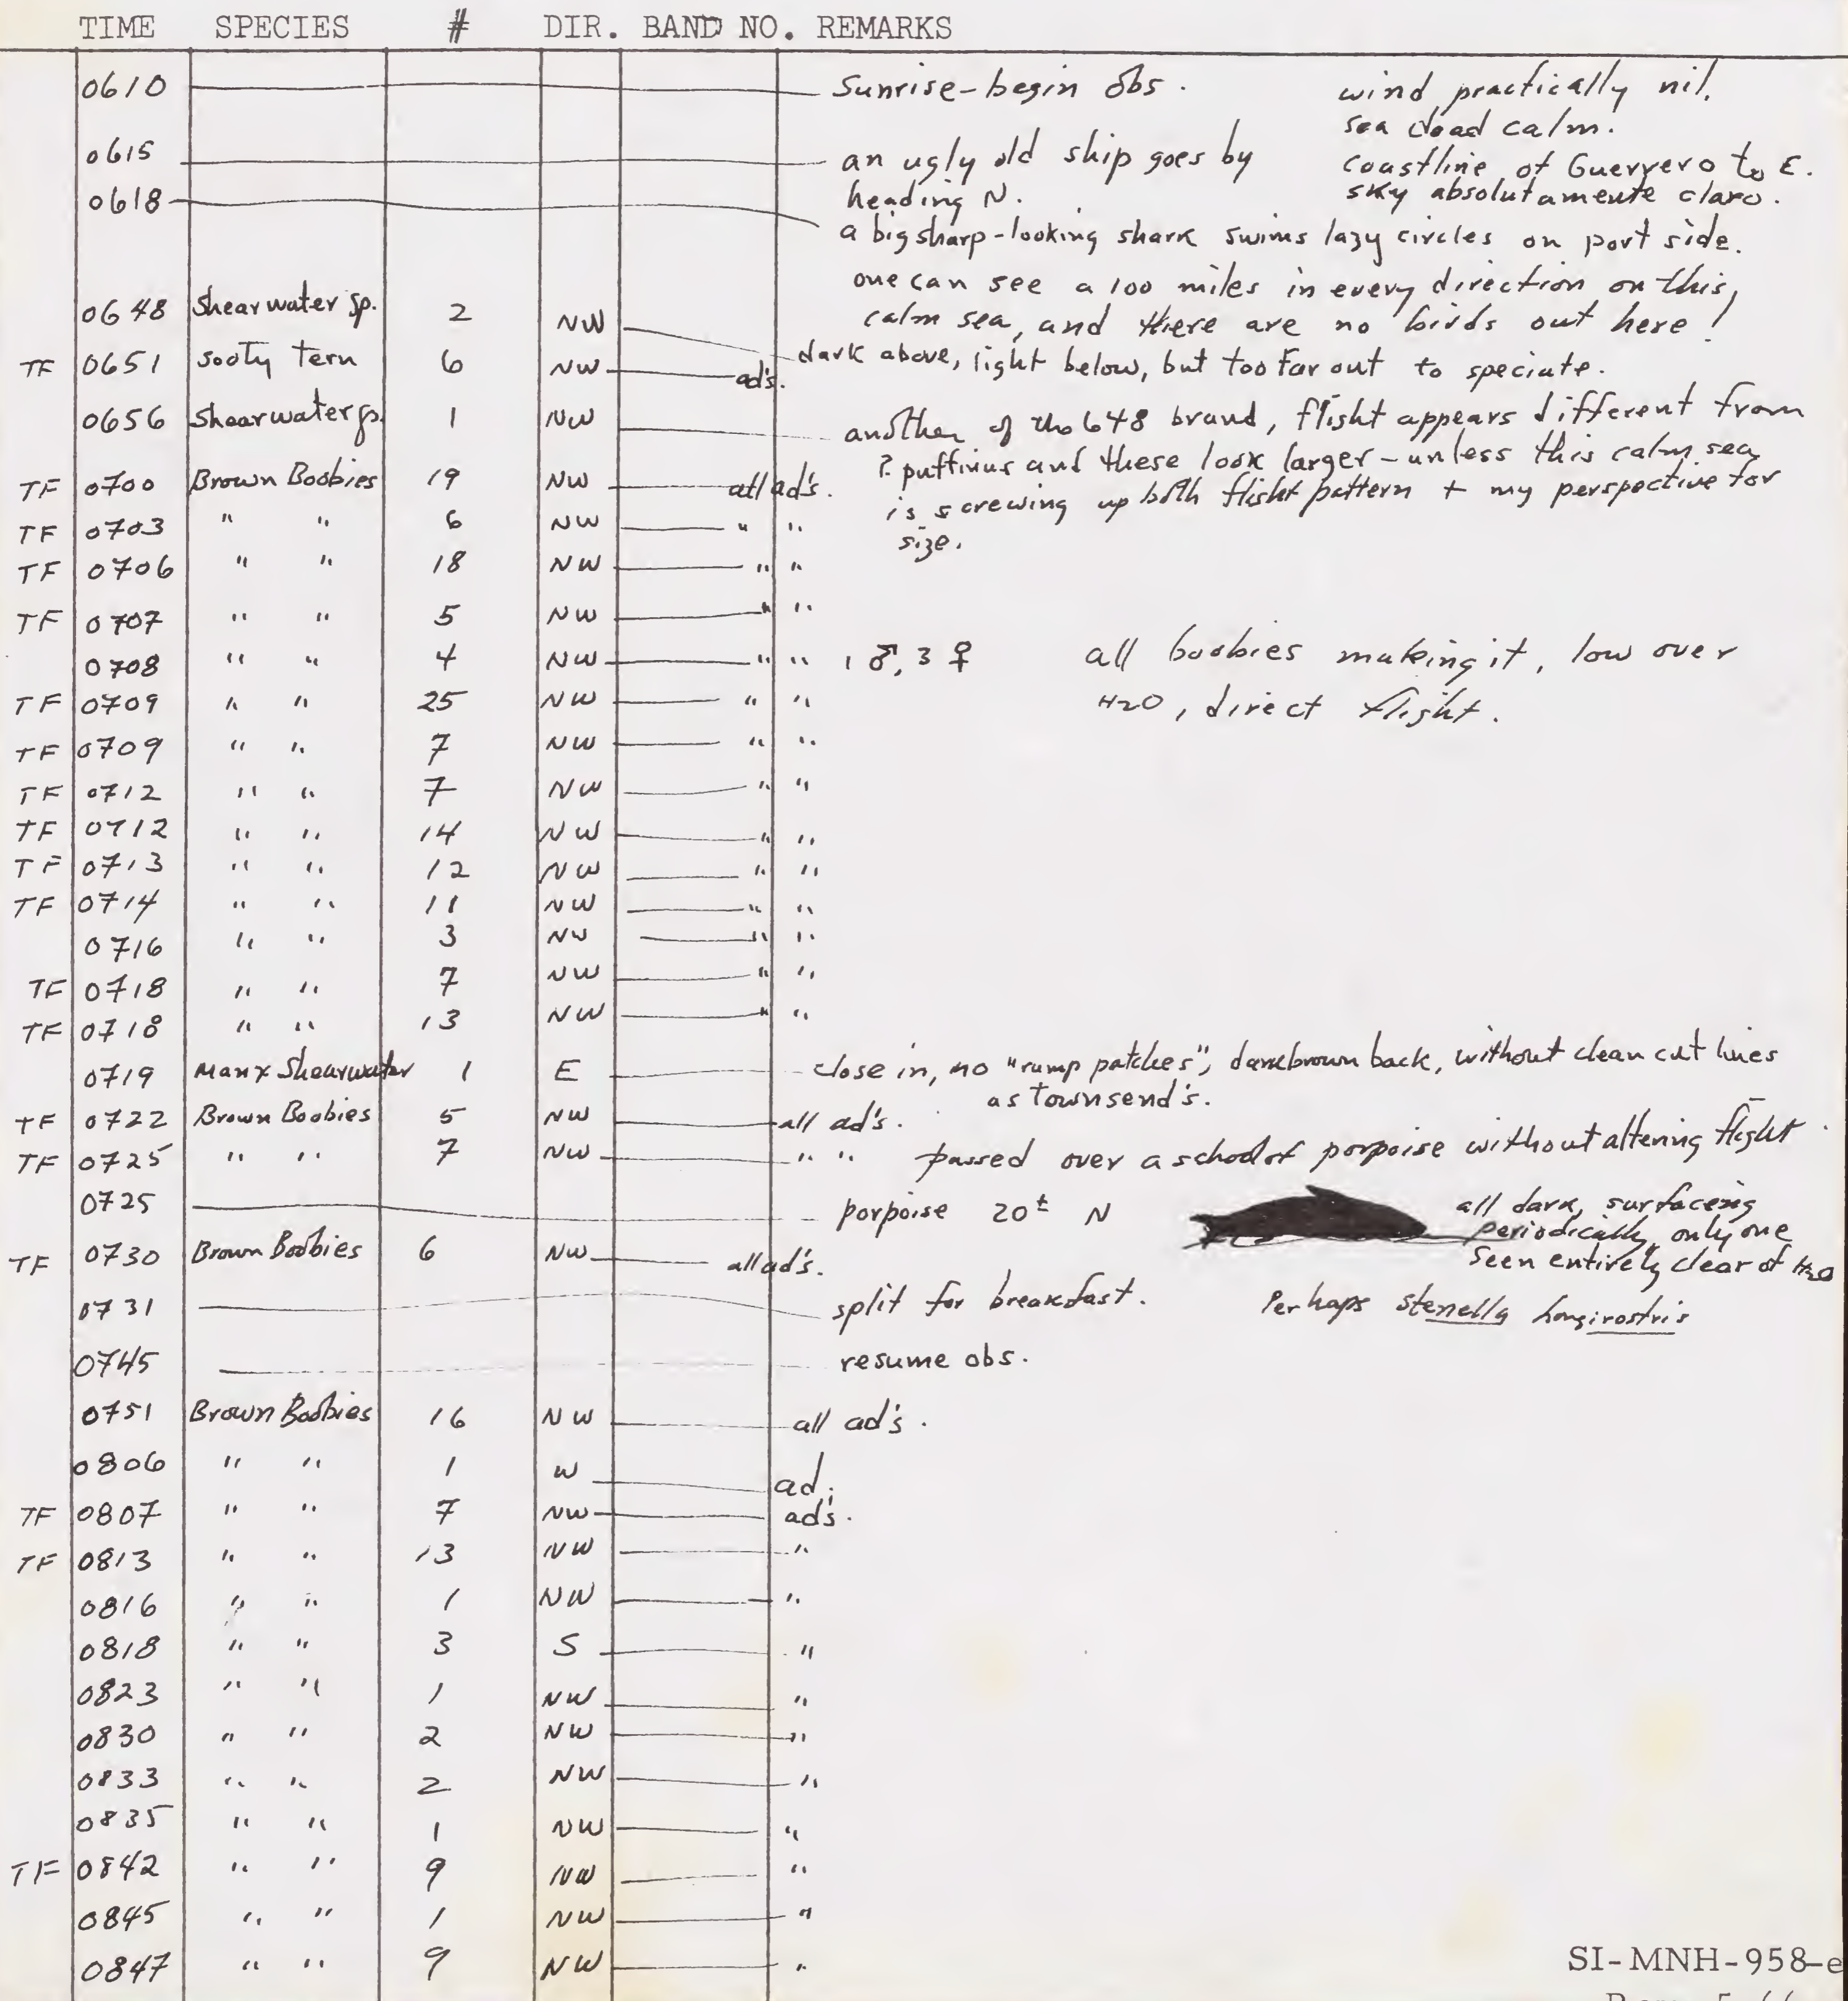 TIME SPECIES # DIR. BAND NO. REMARKS
0610 Sunrise-begin obs. wind practically nil.
sea dead calm.
0615 an ugly old ship goes by coastline of Guerrero to E.
heading N. sky absolutamente claro.
0618 a big sharp-looking shark swims lazy circles on port side.
one can see a 100 miles in every direction on this
calm sea, and there are no birds out here!
0648 Shearwater sp. 2 NW dark above, light below, but too far out to speciate.
TF 0651 Sooty tern 6 NW ad's.
0656 Shearwater sp. 1 NW another of the 648 brand, flight appears different from
P. puffinus and these look larger - unless this calm sea
is screwing up both flight pattern + my perspective for
size.
TF 0700 Brown Boobies 19 NW all ad's.
TF 0703 " " 6 NW " "
TF 0706 " " 18 NW " "
TF 0707 " " 5 NW " "
0708 " " 4 NW " " 1 ♂, 3 ♀ all boobies making it, low over
H2O, direct flight.
TF 0709 " " 25 NW " "
TF 0709 " " 7 NW " "
TF 0712 " " 7 NW " "
TF 0712 " " 14 NW " "
TF 0713 " " 12 NW " "
TF 0714 " " 11 NW " "
0716 " " 3 NW " "
TF 0718 " " 7 NW " "
TF 0718 " " 13 NW " "
0719 Manx Shearwater 1 E close in, no "rump patches", darkbrown back, without clean cut lines
as Townsend's.
TF 0722 Brown Boobies 5 NW all ad's.
TF 0725 " " 7 NW " " passed over a school of porpoise without altering flight.
0725 porpoise 20± N all dark, surfacing
periodically, only one
seen entirely clear of H2O
TF 0730 Brown Boobies 6 NW all ad's.
0731 split for breakfast. Perhaps Stenella longirostris
0745 resume obs.
0751 Brown Boobies 16 NW all ad's.
0806 " " 1 W ad.
TF 0807 " " 7 NW ad's.
TF 0813 " " 13 NW "
0816 " " 1 NW "
0818 " " 3 S "
0823 " " 1 NW "
0830 " " 2 NW "
0833 " " 2 NW "
0835 " " 1 NW "
TF 0842 " " 9 NW "
0845 " " 1 NW "
0847 " " 9 NW "
SI-MNH-958-e